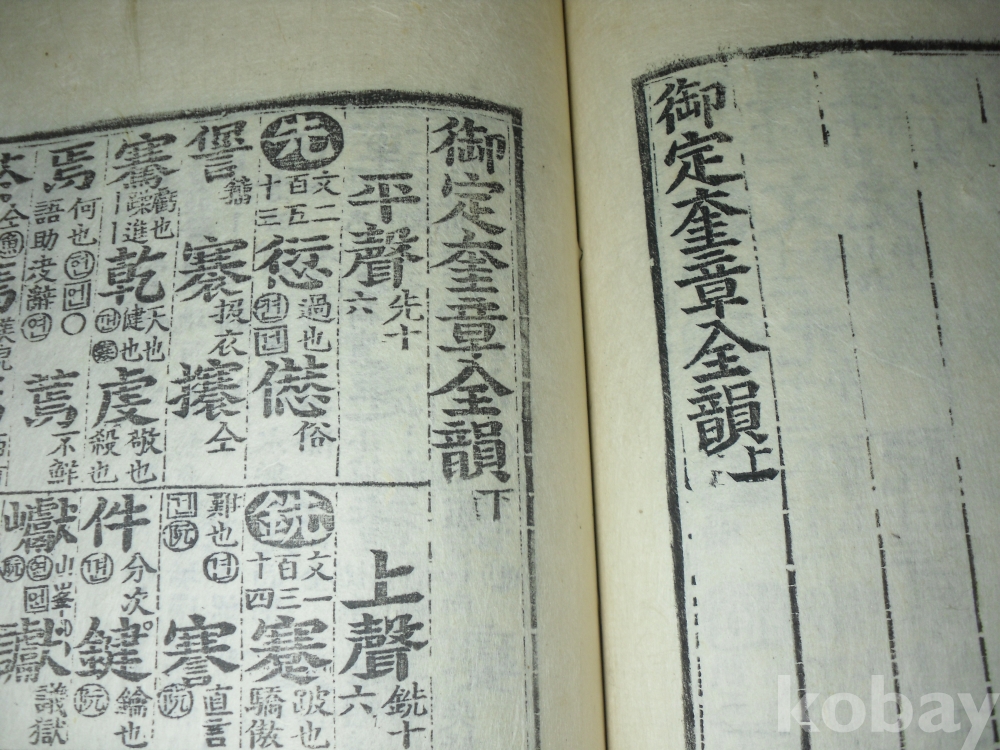 御定奎章全韻上
御定奎章全韻下
平聲 先十六
先 文二百五十三
愆 過也 건 㥶 俗
諐 籒 褰 揭衣 攐 仝
騫 虧也 乾 天也 健也 虔 敬也 殺也
焉 何也 언 ○ 語助決辭 연 焉 不鮮
上聲 銑十六
銑 文一百三十四
蹇 跛也 驕傲
難也 阮 謇 直言 阮
件 分次 鍵 鑰也 阮
巘 山峯 헌 언 阮 讞 議獄
kobay